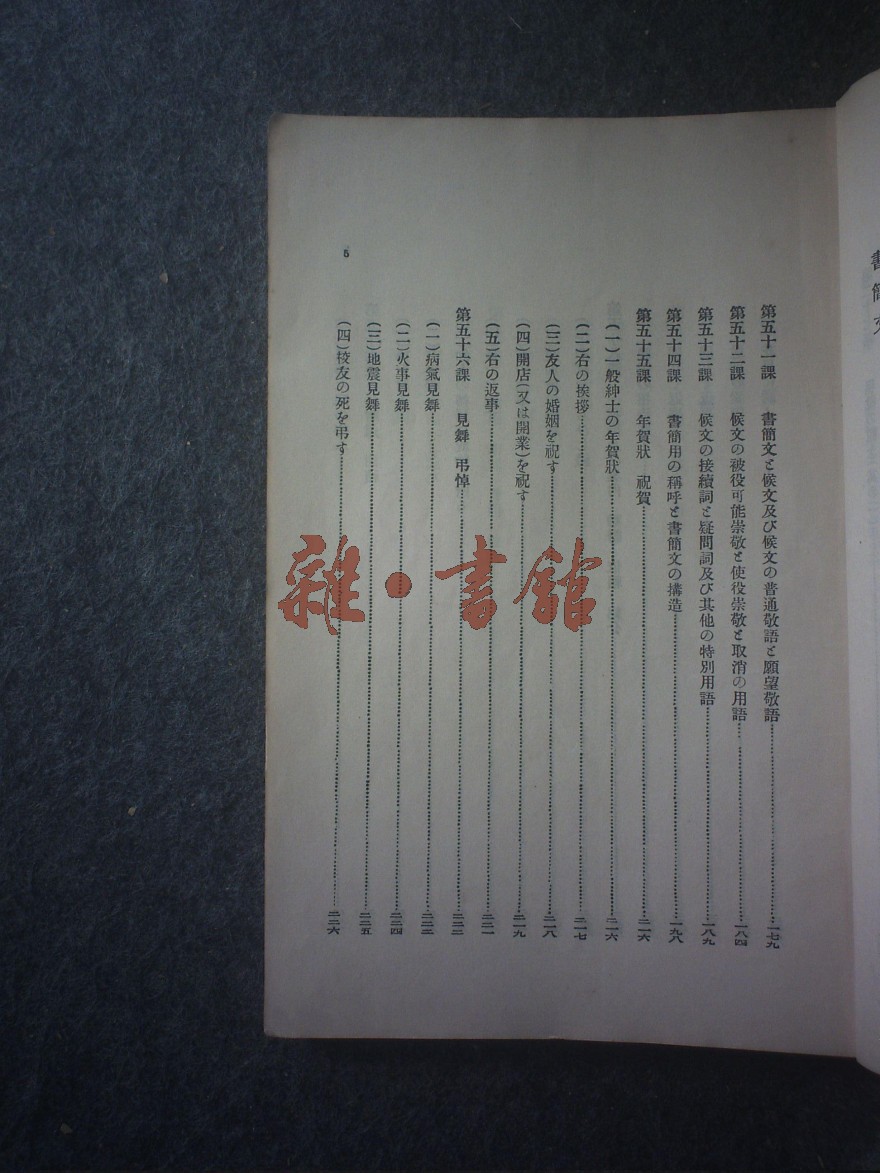 書簡文
第五十一課 書簡文と候文及び候文の普通敬語と願望敬語……一七九
第五十二課 候文の被役可能崇敬と使役崇敬と取消の用語……一八四
第五十三課 候文の接續詞と疑問詞及び其他の特別用語……一八九
第五十四課 書簡用の稱呼と書簡文の搆造……一九八
第五十五課 年賀狀 祝賀……二一六
(一)一般紳士の年賀狀……二一六
(二)右の挨拶……二一七
(三)友人の婚姻を祝す……二一八
(四)開店(又は開業)を祝す……二一九
(五)右の返事……二二一
第五十六課 見舞 弔悼……二二三
(一)病氣見舞……二二三
(二)火事見舞……二二四
(三)地震見舞……二二五
(四)校友の死を弔す……二二六
5
雜·書館